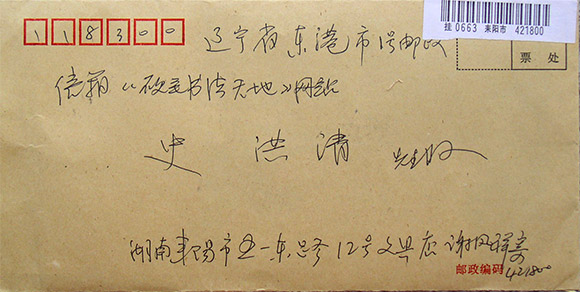 118300
挂0663 耒阳市 421800
辽宁省东港市1号邮政
票 处
信箱《砚玉书法天地》网站
史洪清 先生收
湖南耒阳市五一东路12号文具店 谢冈祥寄
邮政编码
421800